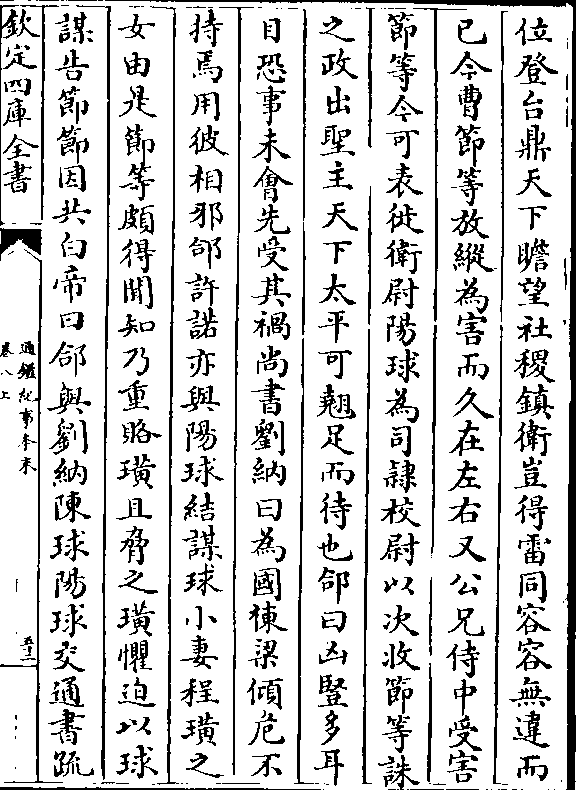 位登台鼎天下瞻望社稷鎮衛豈得雷同容容無違而
已今曹節等放縱為害而久在左右又公兄侍中受害
節等今可表徙衛尉陽球為司隷校尉以次收節等誅
之政出聖主天下太平可翹足而待也郃曰凶豎多耳
目恐事未㑹先受其禍尚書劉納曰為國棟梁傾危不
持焉用彼相邪郃許諾亦與陽球結謀球小妻程璜之
女由是節等頗得聞知乃重賂璜且脅之璜懼迫以球
謀告節節因共白帝曰郃與劉納陳球陽球交通書䟽
欽定四庫全書
通鑑紀事本末
卷八上
五十二